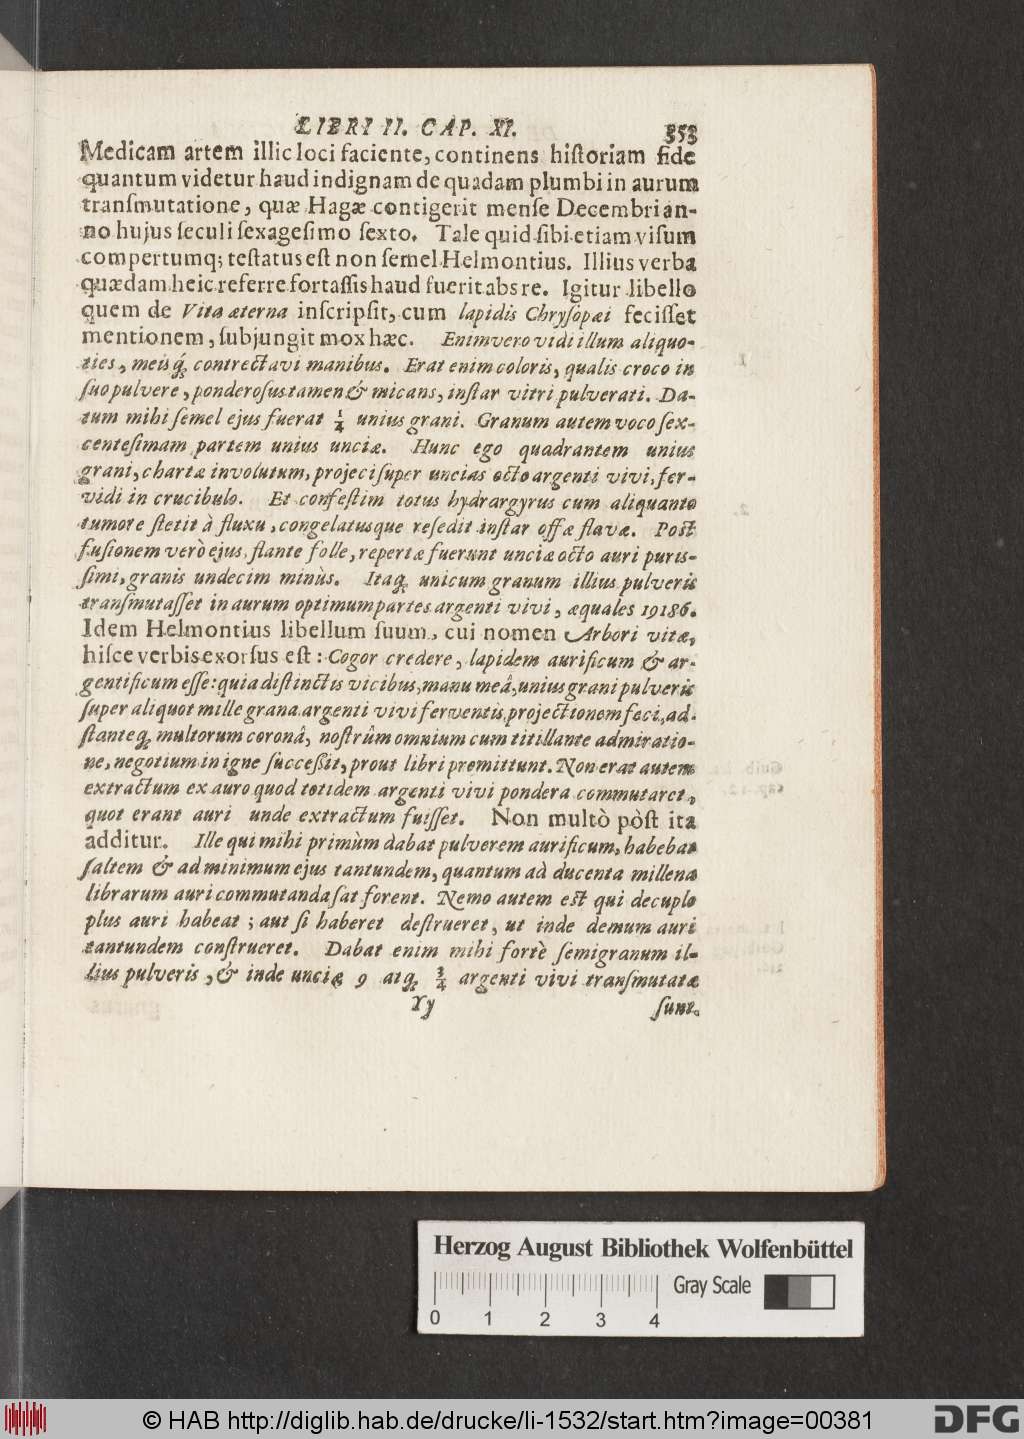 LIBRI II. CAP. XI. 353
Medicam artem illic loci faciente, continens hiſtoriam fide
quantum videtur haud indignam de quadam plumbi in aurum
tranſmutatione, quæ Hagæ contigerit menſe Decembri an-
no hujus ſeculi ſexageſimo ſexto. Tale quid ſibi etiam viſum
compertumq; teſtatus eſt non ſemel Helmontius. Illius verba
quædam heic referre fortaſſis haud fuerit abs re. Igitur libello
quem de Vita æterna inſcripſit, cum lapidis Chryſopæi feciſſet
mentionem, ſubjungit mox hæc. Enimvero vidi illum aliquo-
ties, meisq́; contrectavi manibus. Erat enim coloris, qualis croco in
ſuo pulvere, ponderoſus tamen & micans, inſtar vitri pulverati. Da-
tum mihi ſemel ejus fuerat 1/4 unius grani. Granum autem voco ſex-
centeſimam partem unius unciæ. Hunc ego quadrantem unius
grani, chartæ involutum, projeci ſuper uncias octo argenti vivi, fer-
vidi in crucibulo. Et confeſtim totus hydrargyrus cum aliquanto
tumore ſtetit à fluxu, congelatusque reſedit inſtar offæ flavæ. Poſt
fuſionem verò ejus, flante folle, repertæ fuerunt unciæ octo auri puris-
ſimi, granis undecim minùs. Itaq; unicum granum illius pulveris
tranſmutaſſet in aurum optimum partes argenti vivi, æquales 19186.
Idem Helmontius libellum ſuum, cui nomen Arbori vitæ,
hiſce verbis exorſus eſt: Cogor credere, lapidem aurificum & ar-
gentificum eſſe: quia diſtinctis vicibus, manu meâ, unius grani pulveris
ſuper aliquot mille grana argenti vivi ferventis, projectionem feci, ad-
ſtanteq; multorum coronâ, noſtrûm omnium cum titillante admiratio-
ne, negotium in igne ſucceßit, prout libri promittunt. Non erat autem
extractum ex auro quod totidem argenti vivi pondera commutaret,
quot erant auri unde extractum fuiſſet. Non multò pòſt ita
additur. Ille qui mihi primùm dabat pulverem aurificum, habebat
ſaltem & ad minimum ejus tantundem, quantum ad ducenta millena
librarum auri commutanda ſat forent. Nemo autem eſt qui decuplo
plus auri habeat; aut ſi haberet deſtrueret, ut inde demum auri
tantundem conſtrueret. Dabat enim mihi fortè ſemigranum il-
lius pulveris, & inde unciæ 9 atq; 3/4 argenti vivi tranſmutatæ
Yy ſunt.
Herzog August Bibliothek Wolfenbüttel
0 1 2 3 4 Gray Scale
© HAB http://diglib.hab.de/drucke/li-1532/start.htm?image=00381
DFG